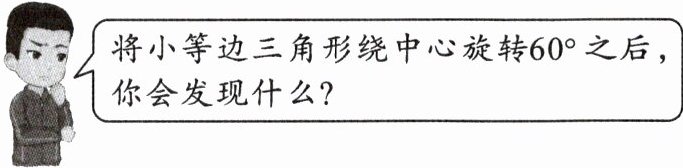 将小等边三角形绕中心旋转60°之后，
你会发现什么？